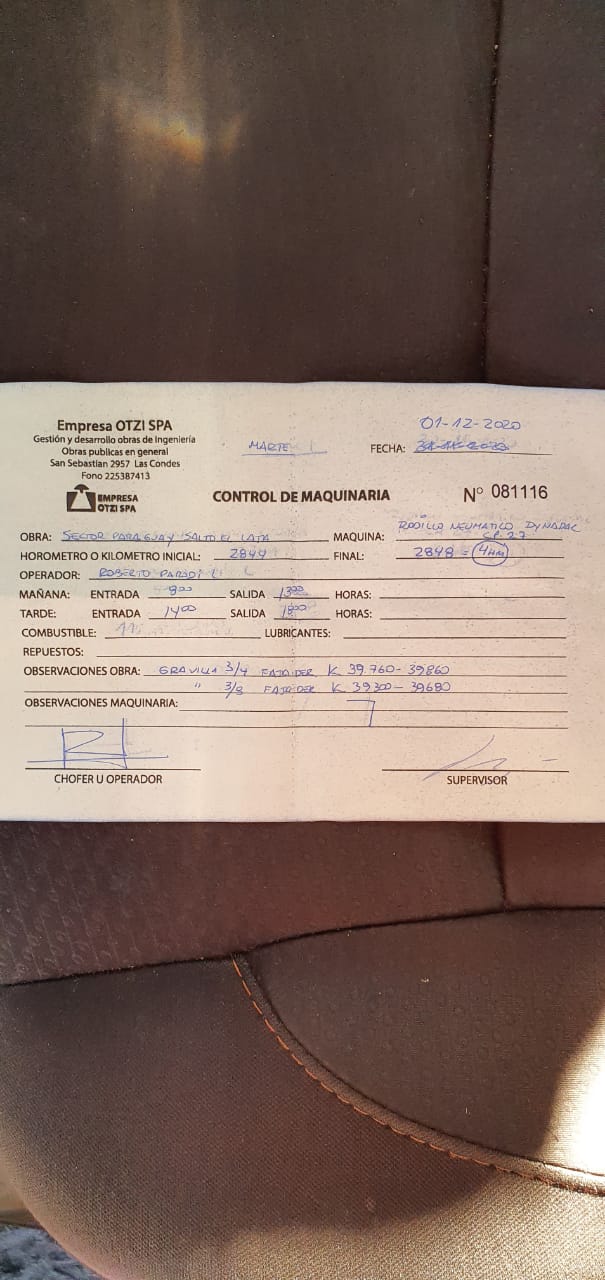 Empresa OTZI SPA
Gestión y desarrollo obras de Ingeniería
Obras publicas en general
San Sebastian 2957 Las Condes
Fono 225387413
EMPRESA
OTZI SPA
MARTE
01-12-2020
FECHA:
CONTROL DE MAQUINARIA
N° 081116
OBRA: SECTOR PARAGUAY SALTO EL LATA MAQUINA: RODILLO NEUMATICO DYNAPAC
CP.27
HOROMETRO O KILOMETRO INICIAL: 2844 FINAL: 2848 = 4HM
OPERADOR: ROBERTO PARODI L
MAÑANA: ENTRADA 8:00 SALIDA 13:00 HORAS:
TARDE: ENTRADA 14:00 SALIDA 18:00 HORAS:
COMBUSTIBLE: LUBRICANTES:
REPUESTOS:
OBSERVACIONES OBRA: GRAVILLA 3/4 FAJA DER K 39.760 - 39860
" 3/8 FAJA DER K 39300 - 39680
OBSERVACIONES MAQUINARIA:
CHOFER U OPERADOR
SUPERVISOR